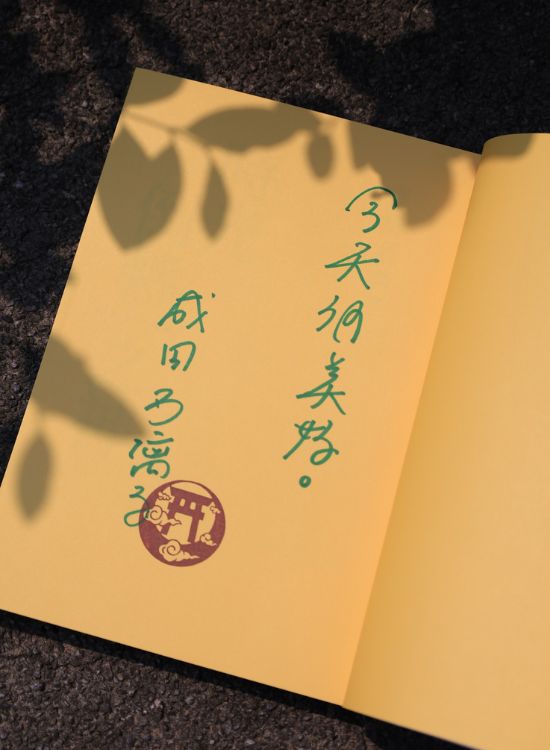 今天很美好。
成田名璃子